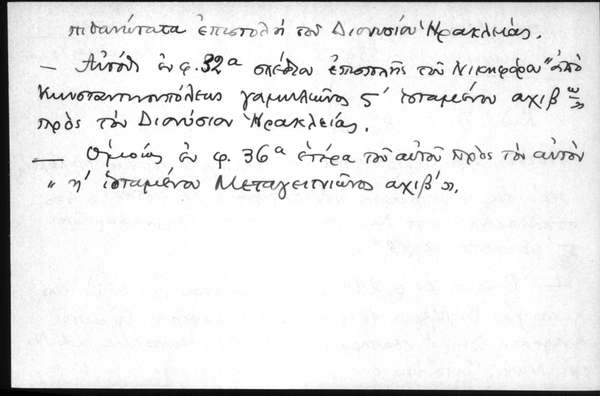 πιθανώτατα ἐπιστολὴ τοῦ Διονυσίου Ἡρακλείας.
— Αὐτόθι ἐν φ. 32α σχέδιον ἐπιστολῆς τοῦ Νικηφόρου "ἀπὸ
Κωνσταντινουπόλεως γαμηλιῶνος ς´ ἱσταμένου αχιβω"
πρὸς τὸν Διονύσιον Ἡρακλείας.
— Ὁμοίως ἐν φ. 36α ἑτέρα τοῦ αὐτοῦ πρὸς τὸν αὐτὸν
"η´ ἱσταμένου Μεταγειτνιῶνος αχιβ´".